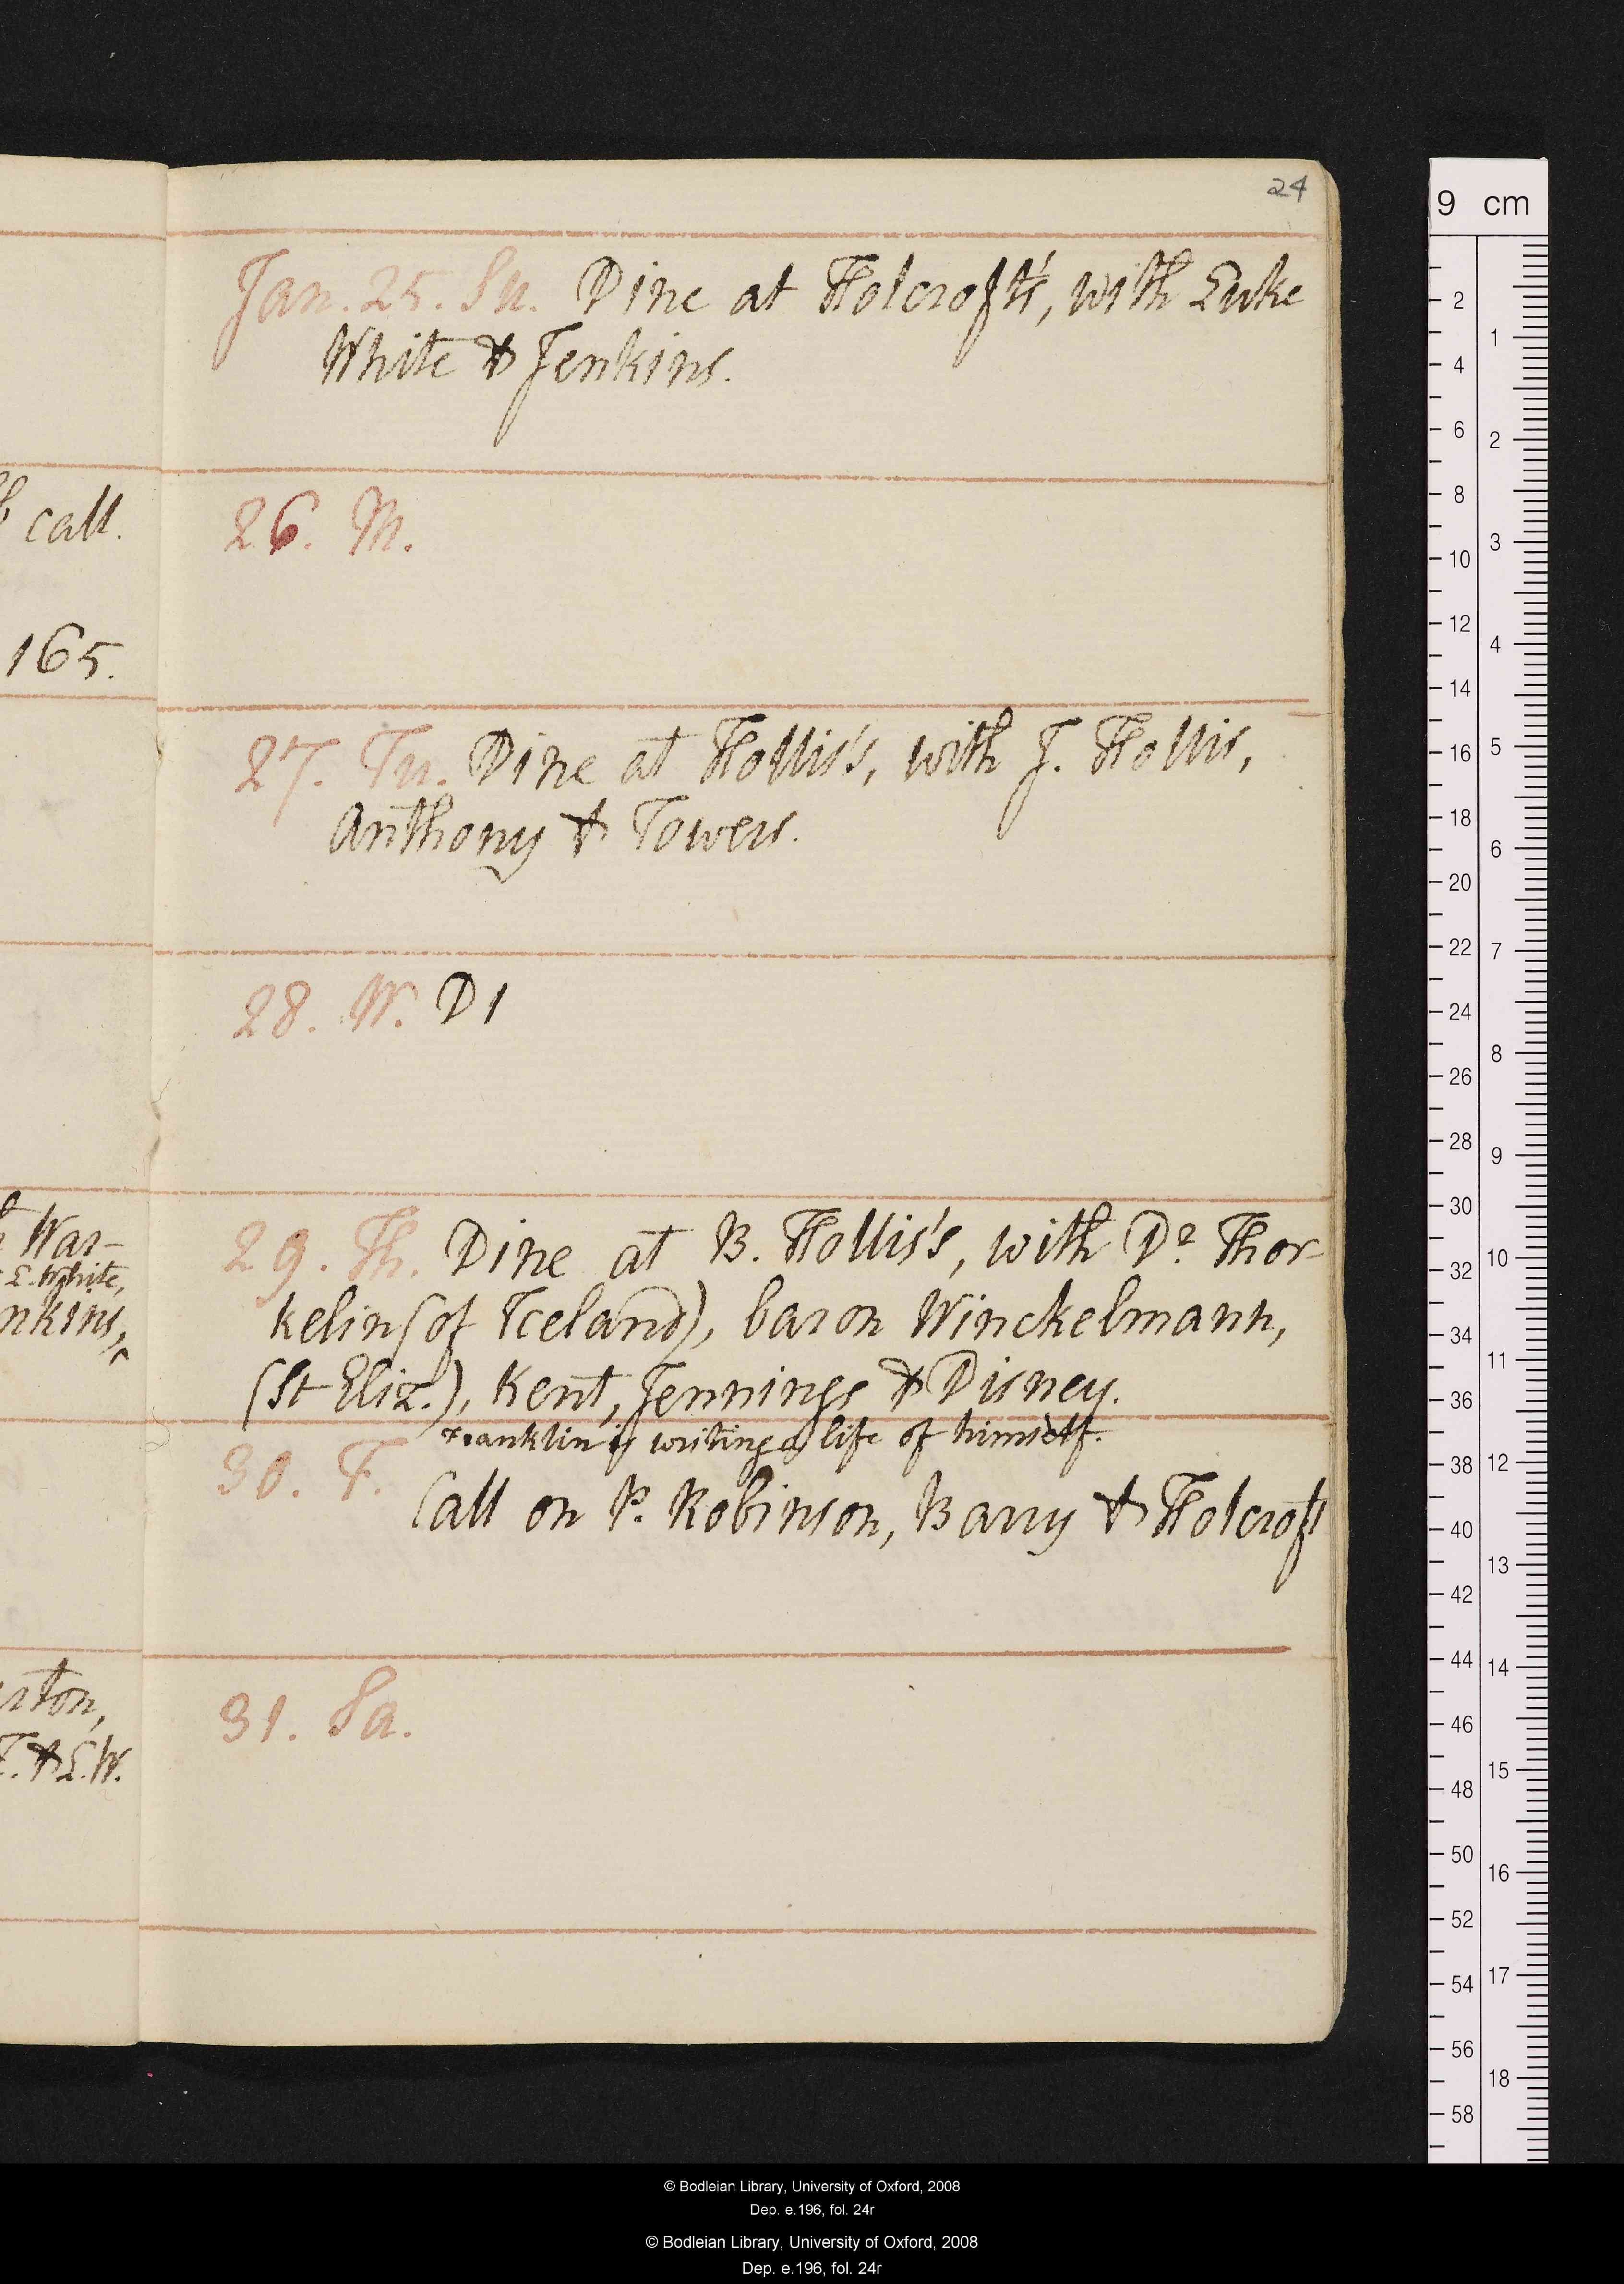 24
Jan. 25. Su. Dine at Holcroft's, with Luke
White & Jenkins.
26. M.
27. Tu. Dine at Hollis's, with J. Hollis,
Anthony & Towers.
28. W. Di
29. Th. Dine at B. Hollis's, with Dr. Thor-
kelin (of Iceland), baron Winckelmann,
(St Eliz.), Kent, Jennings & Disney.
Franklin is writing a life of himself.
30. F.
Call on P. Robinson, Barry & Holcroft
31. Sa.
call.
165.
War-
L. White,
nkins,
rton,
. & L.W.
9 cm
2
4
6
8
10
12
14
16
18
20
22
24
26
28
30
32
34
36
38
40
42
44
46
48
50
52
54
56
58
1
2
3
4
5
6
7
8
9
10
11
12
13
14
15
16
17
18
© Bodleian Library, University of Oxford, 2008
Dep. e.196, fol. 24r
© Bodleian Library, University of Oxford, 2008
Dep. e.196, fol. 24r